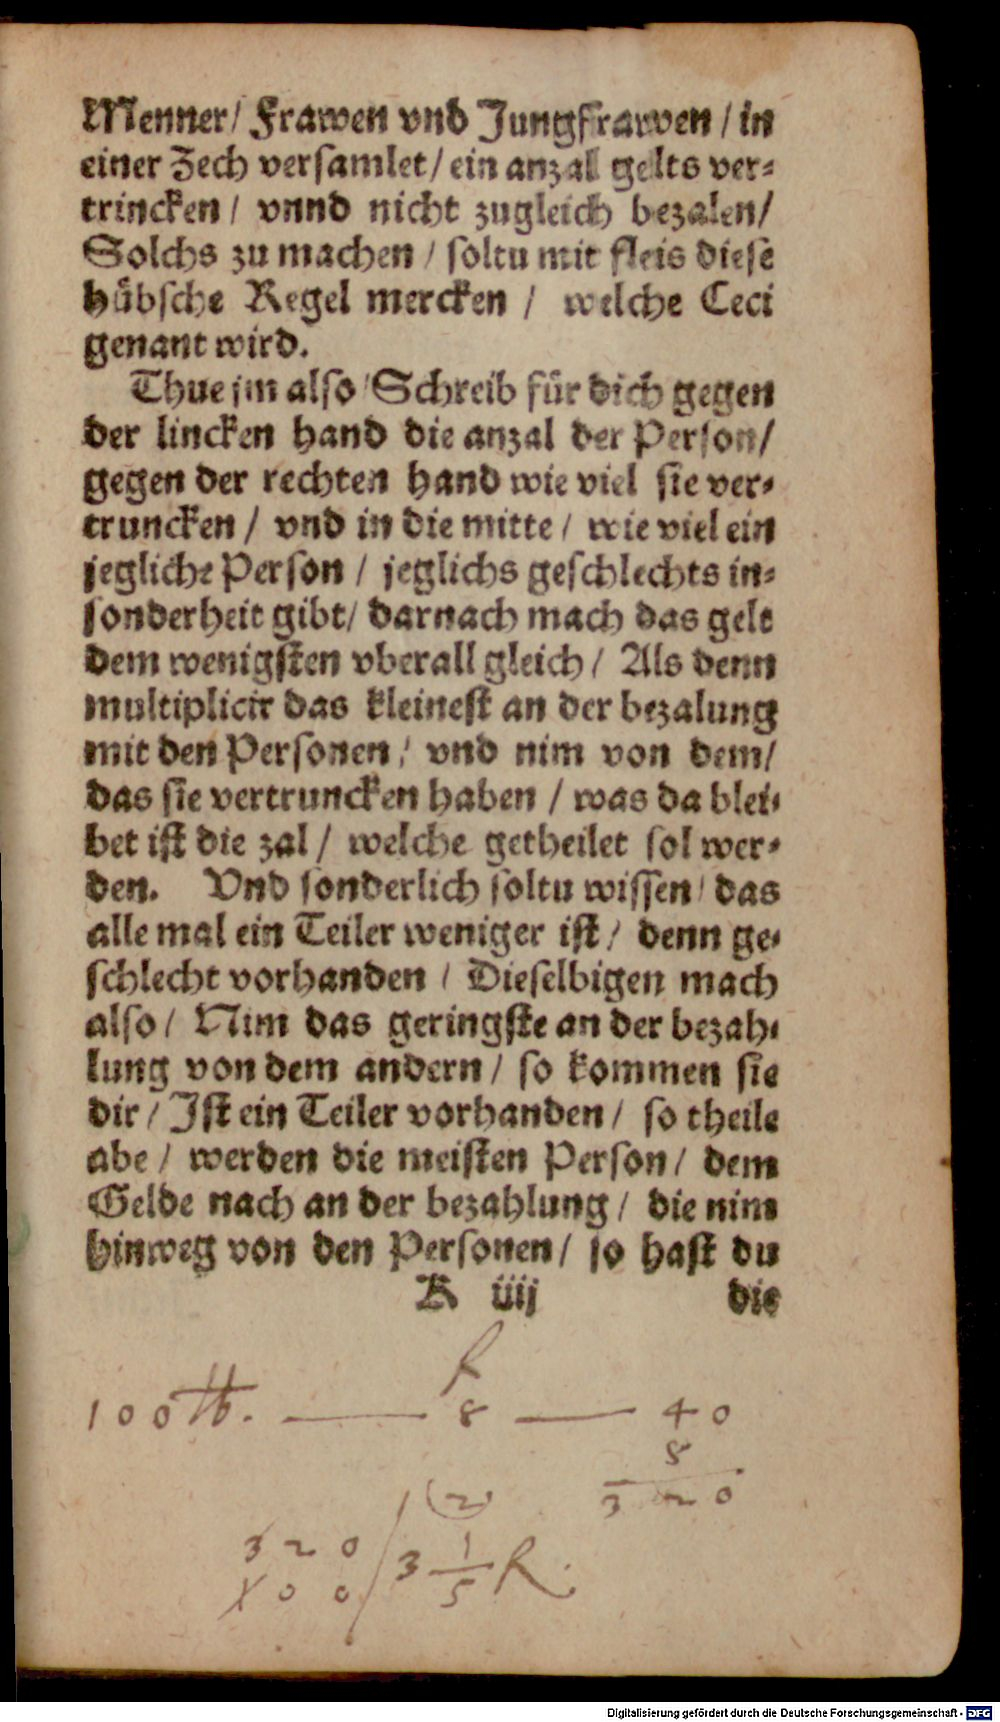 Menner/ Frawen vnd Jungfrawen / in
einer Zech versamlet/ ein anzal gelts ver-
trincken / vnnd nicht zugleich bezalen/
Solchs zu machen / soltu mit fleis diese
hübsche Regel mercken / welche Ceci
genant wird.
Thue jm also/ Schreib für dich gegen
der lincken hand die anzal der Person/
gegen der rechten hand wie viel sie ver-
truncken / vnd in die mitte / wie viel ein
jegliche Person / jeglichs geschlechts in-
sonderheit gibt/ darnach mach das gelt
dem wenigsten vberall gleich / Als denn
multiplicir das kleinest an der bezalung
mit den Personen / vnd nim von dem/
das sie vertruncken haben / was da blei-
bet ist die zal / welche getheilet sol wer-
den. Vnd sonderlich soltu wissen/ das
alle mal ein Teiler weniger ist / denn ge-
schlecht vorhanden / Dieselbigen mach
also / Nim das geringste an der bezah-
lung von dem andern / so kommen sie
dir / Ist ein Teiler vorhanden / so theile
abe / werden die meisten Person / dem
Gelde nach an der bezahlung / die nim
hinweg von den Personen / so hast du
K iiij die
R
100 ℔. — 8 — 40
8
320
(2)
320 / 3 1/5 R.
100
Digitalisierung gefördert durch die Deutsche Forschungsgemeinschaft - DFG